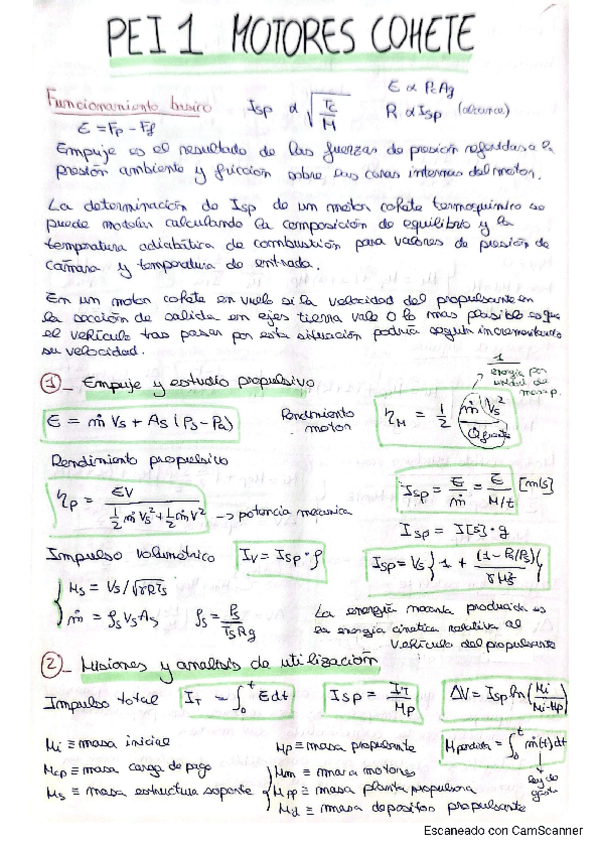 PEI 1 MOTORES COHETE
Funcionamiento basico Isp α √(Tc/M) E α PcAg
E = Fp - Ff R α Isp (alcance)
Empuje es el resultado de las fuerzas de presión referidas a la
presión ambiente y fricción sobre las caras internas del motor.
La determinación de Isp de un motor cohete termoquímico se
puede modelar calculando la composición de equilibrio y la
temperatura adiabática de combustión para valores de presión de
cámara y temperatura de entrada.
En un motor cohete en vuelo si la velocidad del propulsante en
la sección de salida en ejes tierra vale 0 lo mas plausible es que
el vehículo tras pasar por esta situación podría seguir incrementando
su velocidad.
① - Empuje y estudio propulsivo
energía por
unidad de
masa p.
E = ṁ Vs + As (Ps - Pa)
Rendimiento
motor
ηM = 1/2 ṁ Vs²
Rendimiento propulsivo
ηp = EV / (1/2 ṁ Vs² + 1/2 ṁ V²) -> potencia mecanica
Isp = E/ṁ = E/(M/t) [m/s]
Isp = I[s] · g
Impulso volumétrico Iv = Isp · ρ
Isp = Vs { 1 +
Ms = Vs/√γRTs
ṁ = ρs Vs As ρs = Ps/(Ts Rg)
La energía mecanica producida es
la energía cinetica relativa al
vehículo del propulsante
② - Misiones y analisis de utilización
Impulso total IT = ∫₀ᵗ E dt Isp = IT/Mp ΔV = Isp ln (Mi/(Mi-Mp))
Mi ≡ masa inicial Mp ≡ masa propulsante M perdida = ∫₀ᵗ ṁ(t) dt
Mcp ≡ masa carga de pago Mm ≡ masa motores ley de
gasto
Ms ≡ masa estructura soporte Mpp ≡ masa planta propulsora
Md ≡ masa depositos propulsante
Escaneado con CamScanner